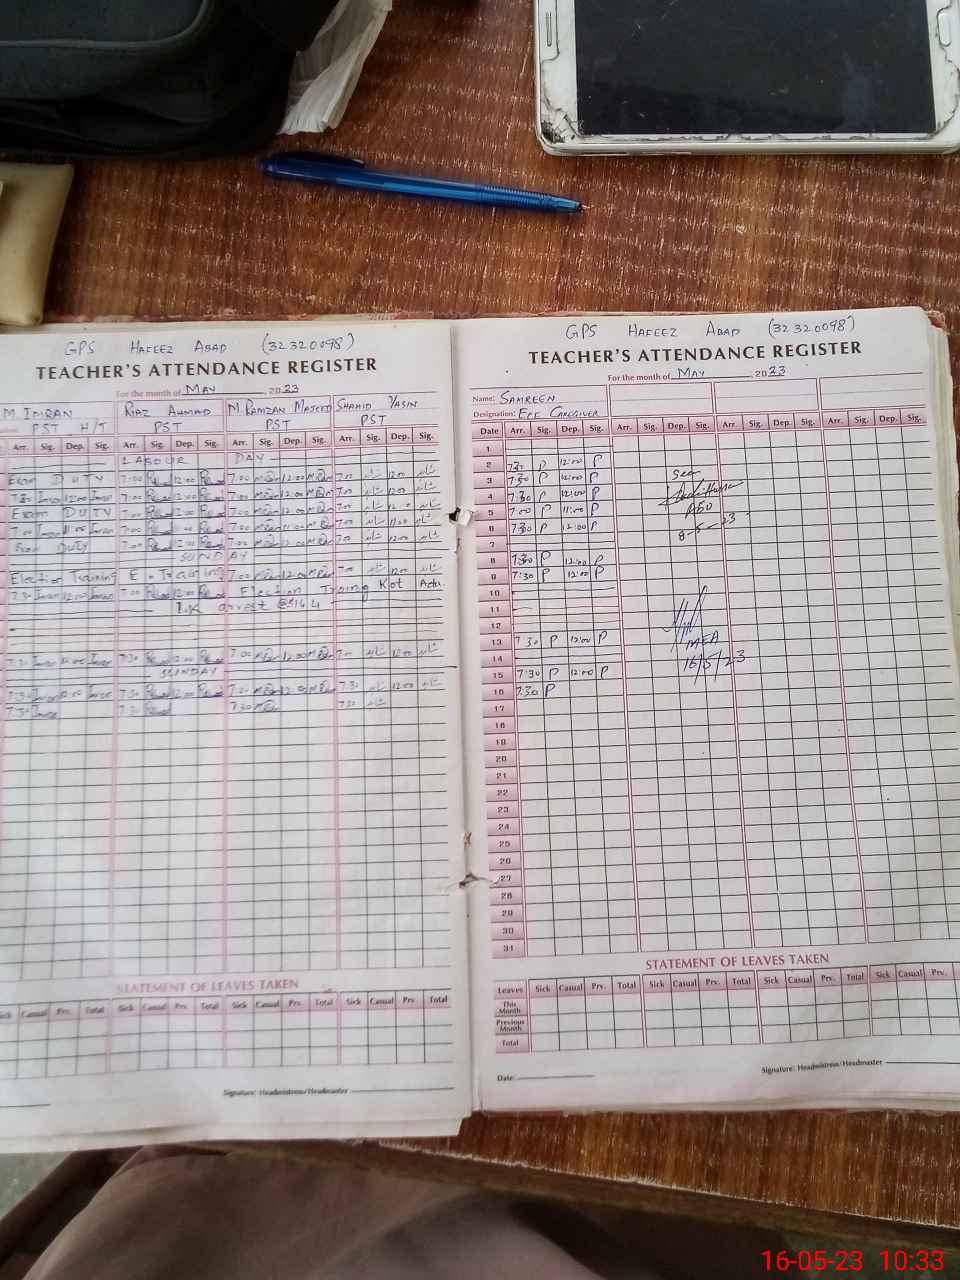 GPS HAFEEZ ABAD (32320098)
TEACHER'S ATTENDANCE REGISTER
For the month of May 2023
M. IMRAN RIAZ AHMAD M. RAMZAN MAJEED SHAHID YASIN
PST H/T PST PST PST
Arr. Sig. Dep. Sig. Arr. Sig. Dep. Sig. Arr. Sig. Dep. Sig.
LABOUR DAY
Exam DUTY 7:00 12:00 7:00 12:00 7:00 12:00
7:30 Imran 12:00 Imran 7:00 12:00 7:00 12:00 7:00 12:00
Exam DUTY 7:00 12:00 7:00 12:00 7:00
7:00 Imran 11:00 Imran 7:00 7:00 11:00 7:00 11:00
Exam Duty 7:00 12:00 7:00 12:00 7:00 12:00
SUNDAY
Election Training E. Training 7:00 12:00 7:00 12:00
7:30 Imran 12:00 Imran 7:00 12:00 Election Training Kot Adu.
I.K arrest
7:30 Imran 12:00 Imran 7:30 12:00 7:00 12:00 7:00 12:00
SUNDAY
7:30 Imran 12:00 Imran 7:30 12:00 7:30 12:00 7:30 12:00
7:30 Imran 7:30 7:30 7:30
STATEMENT OF LEAVES TAKEN
Sick Casual Prv. Total Sick Casual Prv. Total Sick Casual Prv. Total Sick Casual Prv. Total
Signature: Headmistress/Headmaster
GPS HAFEEZ ABAD (32320098)
TEACHER'S ATTENDANCE REGISTER
For the month of May 2023
Name: SAMREEN
Designation: ECE CAREGIVER
Date Arr. Sig. Dep. Sig. Arr. Sig. Dep. Sig. Arr. Sig. Dep. Sig. Arr. Sig. Dep. Sig.
1
2 7:30 P 12:00 P
3 7:30 P 12:00 P
4 7:30 P 12:00 P
5 7:00 P 11:00 P
6 7:30 P 12:00 P
7
8 7:30 P 12:00 P
9 7:30 P 12:00 P
10
11
12
13 7:30 P 12:00 P
14
15 7:30 P 12:00 P
16 7:30 P
17
18
19
20
21
22
23
24
25
26
27
28
29
30
31
Seen
8-5-23
MEA
16/5/23
STATEMENT OF LEAVES TAKEN
Leaves Sick Casual Prv. Total Sick Casual Prv. Total Sick Casual Prv. Total Sick Casual Prv.
This Month
Previous Month
Total
Date:
Signature: Headmistress/Headmaster
16-05-23 10:33